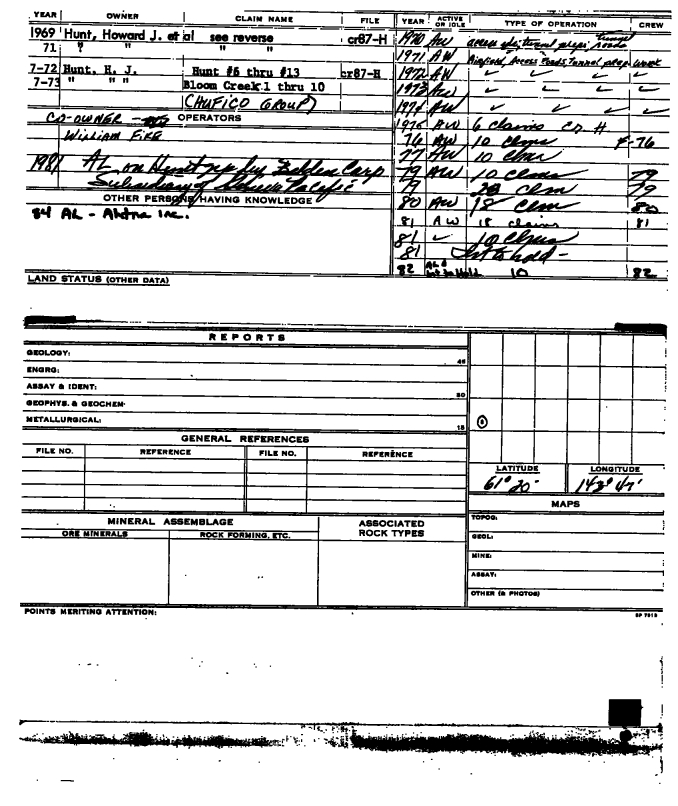 YEAR OWNER CLAIM NAME FILE YEAR ACTIVE OR IDLE TYPE OF OPERATION CREW
1969 Hunt, Howard J. et al see reverse cr87-H 1970 AW access rds, tunnel preps, roads
71 " " " " 1971 AW Airfield, Access Roads, Tunnel prep Work
7-72 Hunt, H. J. Hunt #6 thru #13 cr87-H 1972 AW ✓ ✓ ✓ ✓
7-73 " " " Bloom Creek 1 thru 10 1973 AW ✓ ✓ ✓ ✓
(CHUFICO GROUP) 1974 ✓ ✓ ✓ ✓
CO-OWNER OPERATORS 1975 AW 6 claims
William Fike 76 AW 10 claims F-76
77 AW 10 claim
1981 AL on Hunt rep by Felden Corp 79 AW 10 claims 79
Subsidiary of Louisiana Pacific 79 20 clm 79
OTHER PERSONS HAVING KNOWLEDGE 80 AW 18 clm 80
84 AL - Ahtna Inc. 81 AW 18 claims 81
81 ✓ 10 claims
81 Int to hold -
82 AL & Int to Hold 10 82
LAND STATUS (OTHER DATA)
REPORTS
GEOLOGY: 45
ENGRG:
ASSAY & IDENT: 30
GEOPHYS. & GEOCHEM·
METALLURGICAL: 15
GENERAL REFERENCES
FILE NO. REFERENCE FILE NO. REFERENCE
LATITUDE LONGITUDE
61° 20' 142° 47'
MAPS
MINERAL ASSEMBLAGE ASSOCIATED ROCK TYPES
ORE MINERALS ROCK FORMING, ETC.
TOPOG:
GEOL:
MINE:
ASSAY:
OTHER (& PHOTOS)
POINTS MERITING ATTENTION: SP 7513